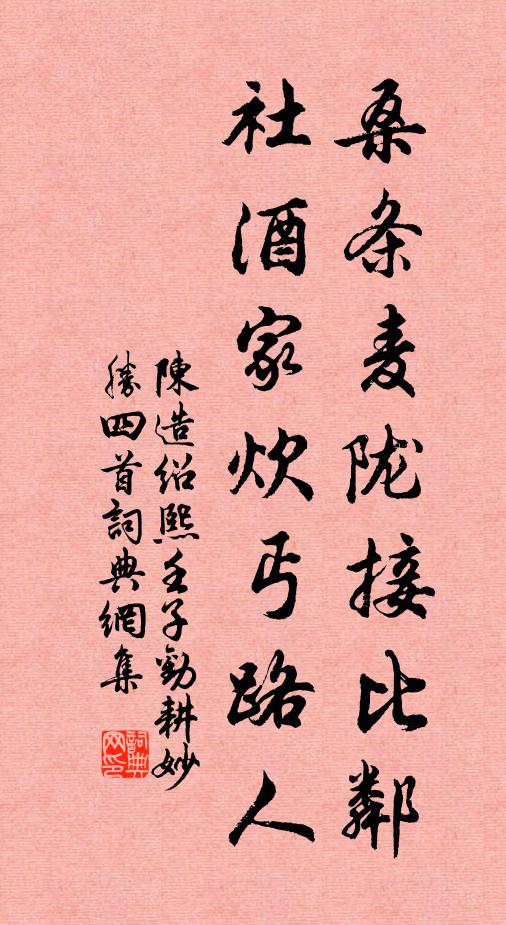 桑条麦陇接比鄰
社酒家炊丐路人
陳造绍熙壬子勸耕妙
勝四首詞典網集
詞典網印